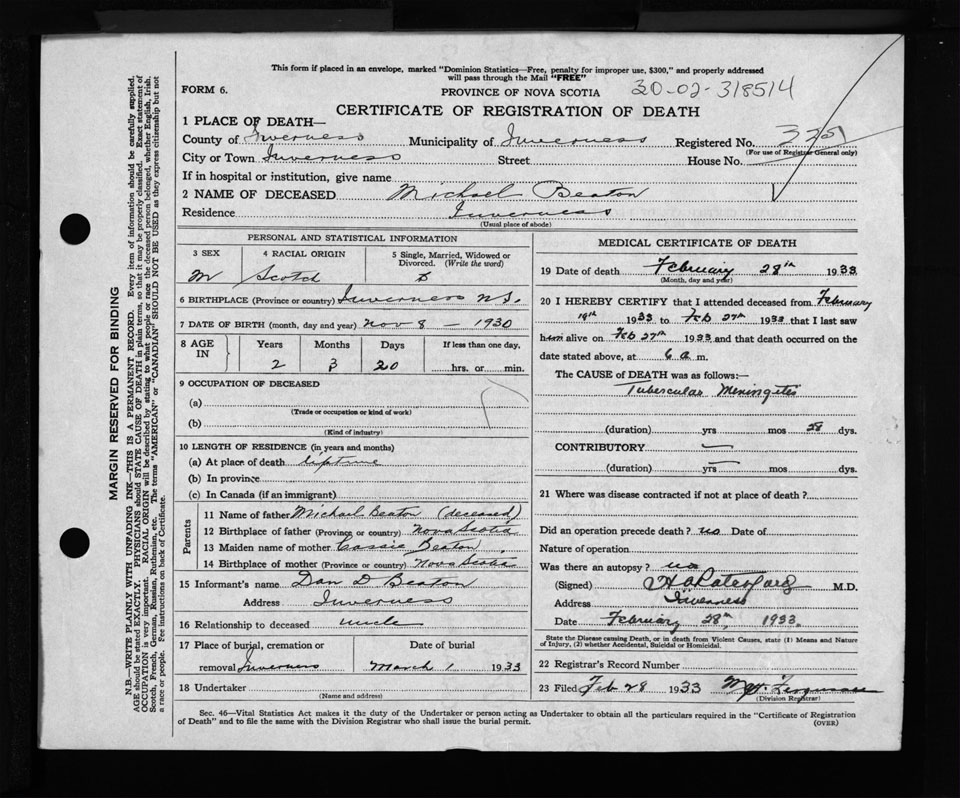 This form if placed in an envelope, marked "Dominion Statistics—Free, penalty for improper use, $300," and properly addressed
will pass through the Mail "FREE"
FORM 6.
PROVINCE OF NOVA SCOTIA
30-02-318514
CERTIFICATE OF REGISTRATION OF DEATH
1 PLACE OF DEATH—
County of Inverness Municipality of Inverness Registered No.
(For use of Registrar General only)
City or Town Inverness Street House No.
If in hospital or institution, give name
2 NAME OF DECEASED Michael Beaton
Residence Inverness
(Usual place of abode)
PERSONAL AND STATISTICAL INFORMATION
3 SEX 4 RACIAL ORIGIN 5 Single, Married, Widowed or
Divorced. (Write the word)
M Scotch S
6 BIRTHPLACE (Province or country) Inverness N.S.
7 DATE OF BIRTH (month, day and year) Nov 8 — 1930
8 AGE IN Years Months Days If less than one day,
2 3 20 hrs. or min.
9 OCCUPATION OF DECEASED
(a)
(Trade or occupation or kind of work)
(b)
(Kind of industry)
10 LENGTH OF RESIDENCE (in years and months)
(a) At place of death lifetime
(b) In province
(c) In Canada (if an immigrant)
Parents
11 Name of father Michael Beaton (deceased)
12 Birthplace of father (Province or country) Nova Scotia
13 Maiden name of mother Cassie Beaton
14 Birthplace of mother (Province or country) Nova Scotia
15 Informant's name Dan D Beaton
Address Inverness
16 Relationship to deceased uncle
17 Place of burial, cremation or Date of burial
removal Inverness March 1 1933
18 Undertaker
(Name and address)
MEDICAL CERTIFICATE OF DEATH
19 Date of death February 28th 1933
(Month, day and year)
20 I HEREBY CERTIFY that I attended deceased from February
19th 1933 to Feb 27th 1933 that I last saw
him alive on Feb 27th 1933 and that death occurred on the
date stated above, at 6 a m.
The CAUSE of DEATH was as follows:—
Tubercular Meningites
(duration) yrs mos 28 dys.
CONTRIBUTORY
(duration) yrs mos dys.
21 Where was disease contracted if not at place of death?
Did an operation precede death? no Date of
Nature of operation
Was there an autopsy? no
(Signed) M.D.
Address Inverness
Date February 28th, 1933
State the Disease causing Death, or in death from Violent Causes, state (1) Means and Nature
of Injury, (2) whether Accidental, Suicidal or Homicidal.
22 Registrar's Record Number
23 Filed Feb 28 1933
(Division Registrar)
Sec. 46—Vital Statistics Act makes it the duty of the Undertaker or person acting as Undertaker to obtain all the particulars required in the "Certificate of Registration
of Death" and to file the same with the Division Registrar who shall issue the burial permit.
(OVER)
MARGIN RESERVED FOR BINDING
N.B.—WRITE PLAINLY WITH UNFADING INK—THIS IS A PERMANENT RECORD. Every item of information should be carefully supplied.
AGE should be stated EXACTLY. PHYSICIANS should STATE CAUSE OF DEATH in plain terms, so that it may be properly classified. Exact statement of
OCCUPATION is very important. RACIAL ORIGIN will be described by stating to what people or race the deceased person belonged, whether English, Irish,
Scotch, French, German, Russian, Ruthenian, etc. The terms "AMERICAN" or "CANADIAN" SHOULD NOT BE USED as they express citizenship but not
a race or people. See instructions on back of Certificate.